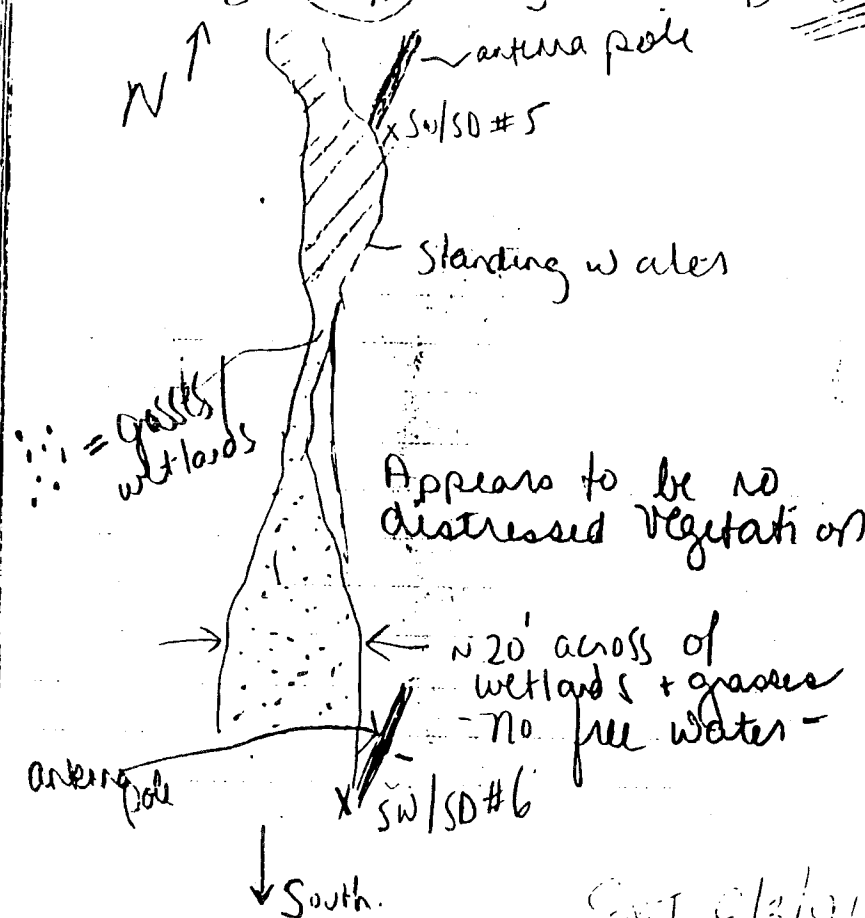 N
antenna pole
x SW/SD #5
Standing water
= grasses
wetlands
Appears to be no
distressed vegetation
~ 20' across of
wetlands + grasses
- no free water -
antenna
pole
X SW/SD #6
South.